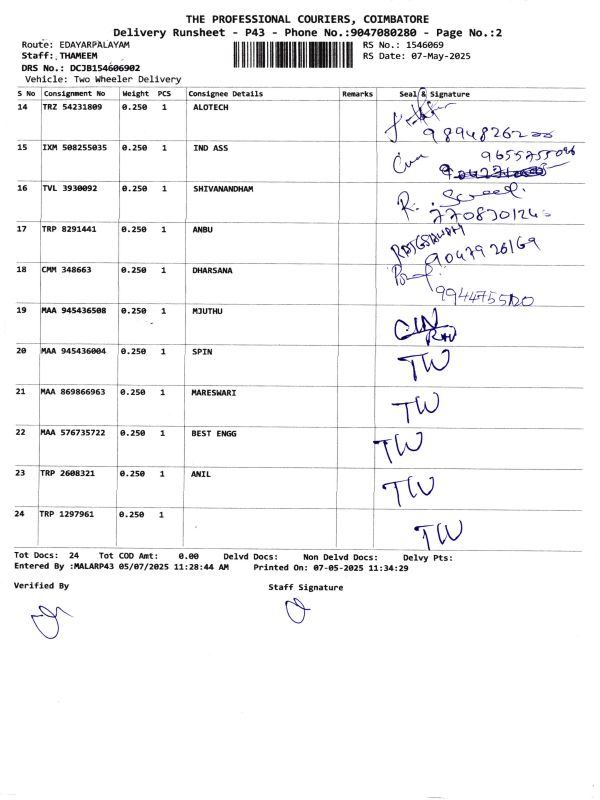 THE PROFESSIONAL COURIERS, COIMBATORE
Delivery Runsheet - P43 - Phone No.:9047080280 - Page No.:2
Route: EDAYARPALAYAM RS No.: 1546069
Staff: THAMEEM RS Date: 07-May-2025
DRS No.: DCJB154606902
Vehicle: Two Wheeler Delivery
S No Consignment No Weight PCS Consignee Details Remarks Seal & Signature
14 TRZ 54231809 0.250 1 ALOTECH
15 IXM 508255035 0.250 1 IND ASS
9655755096
16 TVL 3930092 0.250 1 SHIVANANDHAM
R.
17 TRP 8291441 0.250 1 ANBU
9047926169
18 CMM 348663 0.250 1 DHARSANA
9944755120
19 MAA 945436508 0.250 1 MJUTHU
20 MAA 945436004 0.250 1 SPIN TW
21 MAA 869866963 0.250 1 MARESWARI TW
22 MAA 576735722 0.250 1 BEST ENGG TW
23 TRP 2608321 0.250 1 ANIL TW
24 TRP 1297961 0.250 1 TW
Tot Docs: 24 Tot COD Amt: 0.00 Delvd Docs: Non Delvd Docs: Delvy Pts:
Entered By :MALARP43 05/07/2025 11:28:44 AM Printed On: 07-05-2025 11:34:29
Verified By Staff Signature